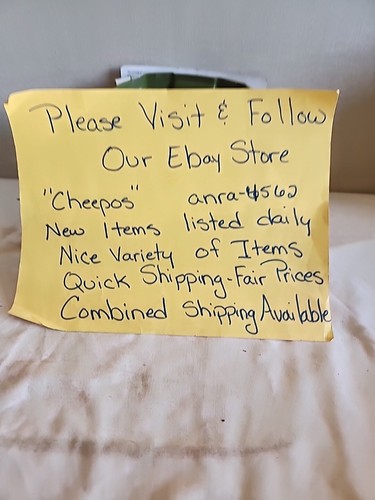 Please Visit & Follow
Our Ebay Store
"Cheepos" anra-4562
New Items listed daily
Nice Variety of Items
Quick Shipping-Fair Prices
Combined Shipping Available